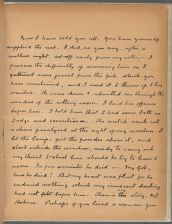 Now I have told you all. You have yourself
supplied the rest. I did, as you say, after a
restless night, set off early from my cottage. I
foresaw the difficulty of arousing him so I
gathered some gravel from the pile which you
have mentioned, and I used it to throw up to his
window. He came down and admitted me through the
window of the sitting room. I laid his offence
before him. I told him that I had come both as
Judge and executioner. The wretch sank into
a chair paralysed at the sight of my revolver. I
lit the lamp, put the powder above it, and
stood outside the window, ready to carry out
my threat to shoot him should he try to leave the
room. In five minutes he died. My God,
how he died! But my heart was flint for he
endured nothing which my innocent darling
had not felt before him. There is my story, Mr
Holmes. Perhaps if you loved a woman you